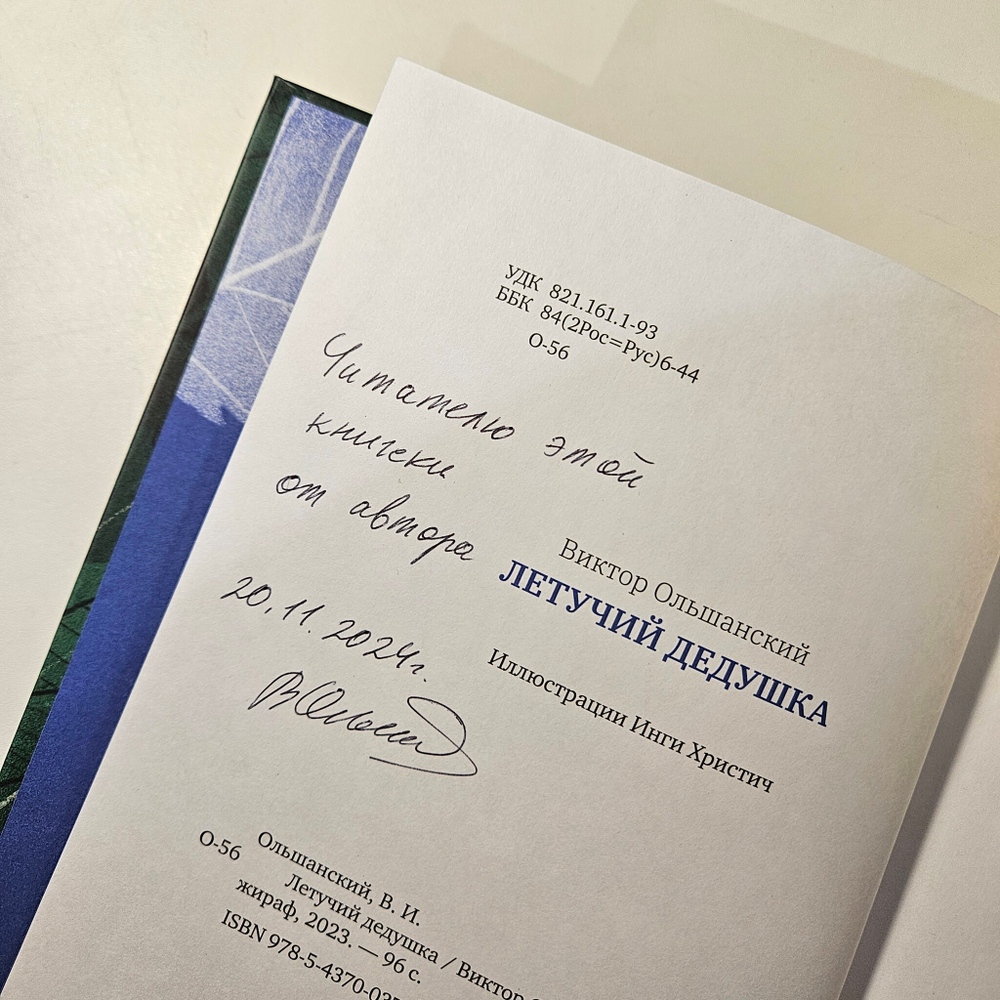 УДК 821.161.1-93
ББК 84(2Рос=Рус)6-44
О-56
Читателю этой
книжки
от автора
20.11.2024г.
Виктор Ольшанский
ЛЕТУЧИЙ ДЕДУШКА
Иллюстрации Инги Христич
Ольшанский, В. И.
О-56
Летучий дедушка / Виктор
жираф, 2023. — 96 с.
ISBN 978-5-4370-03